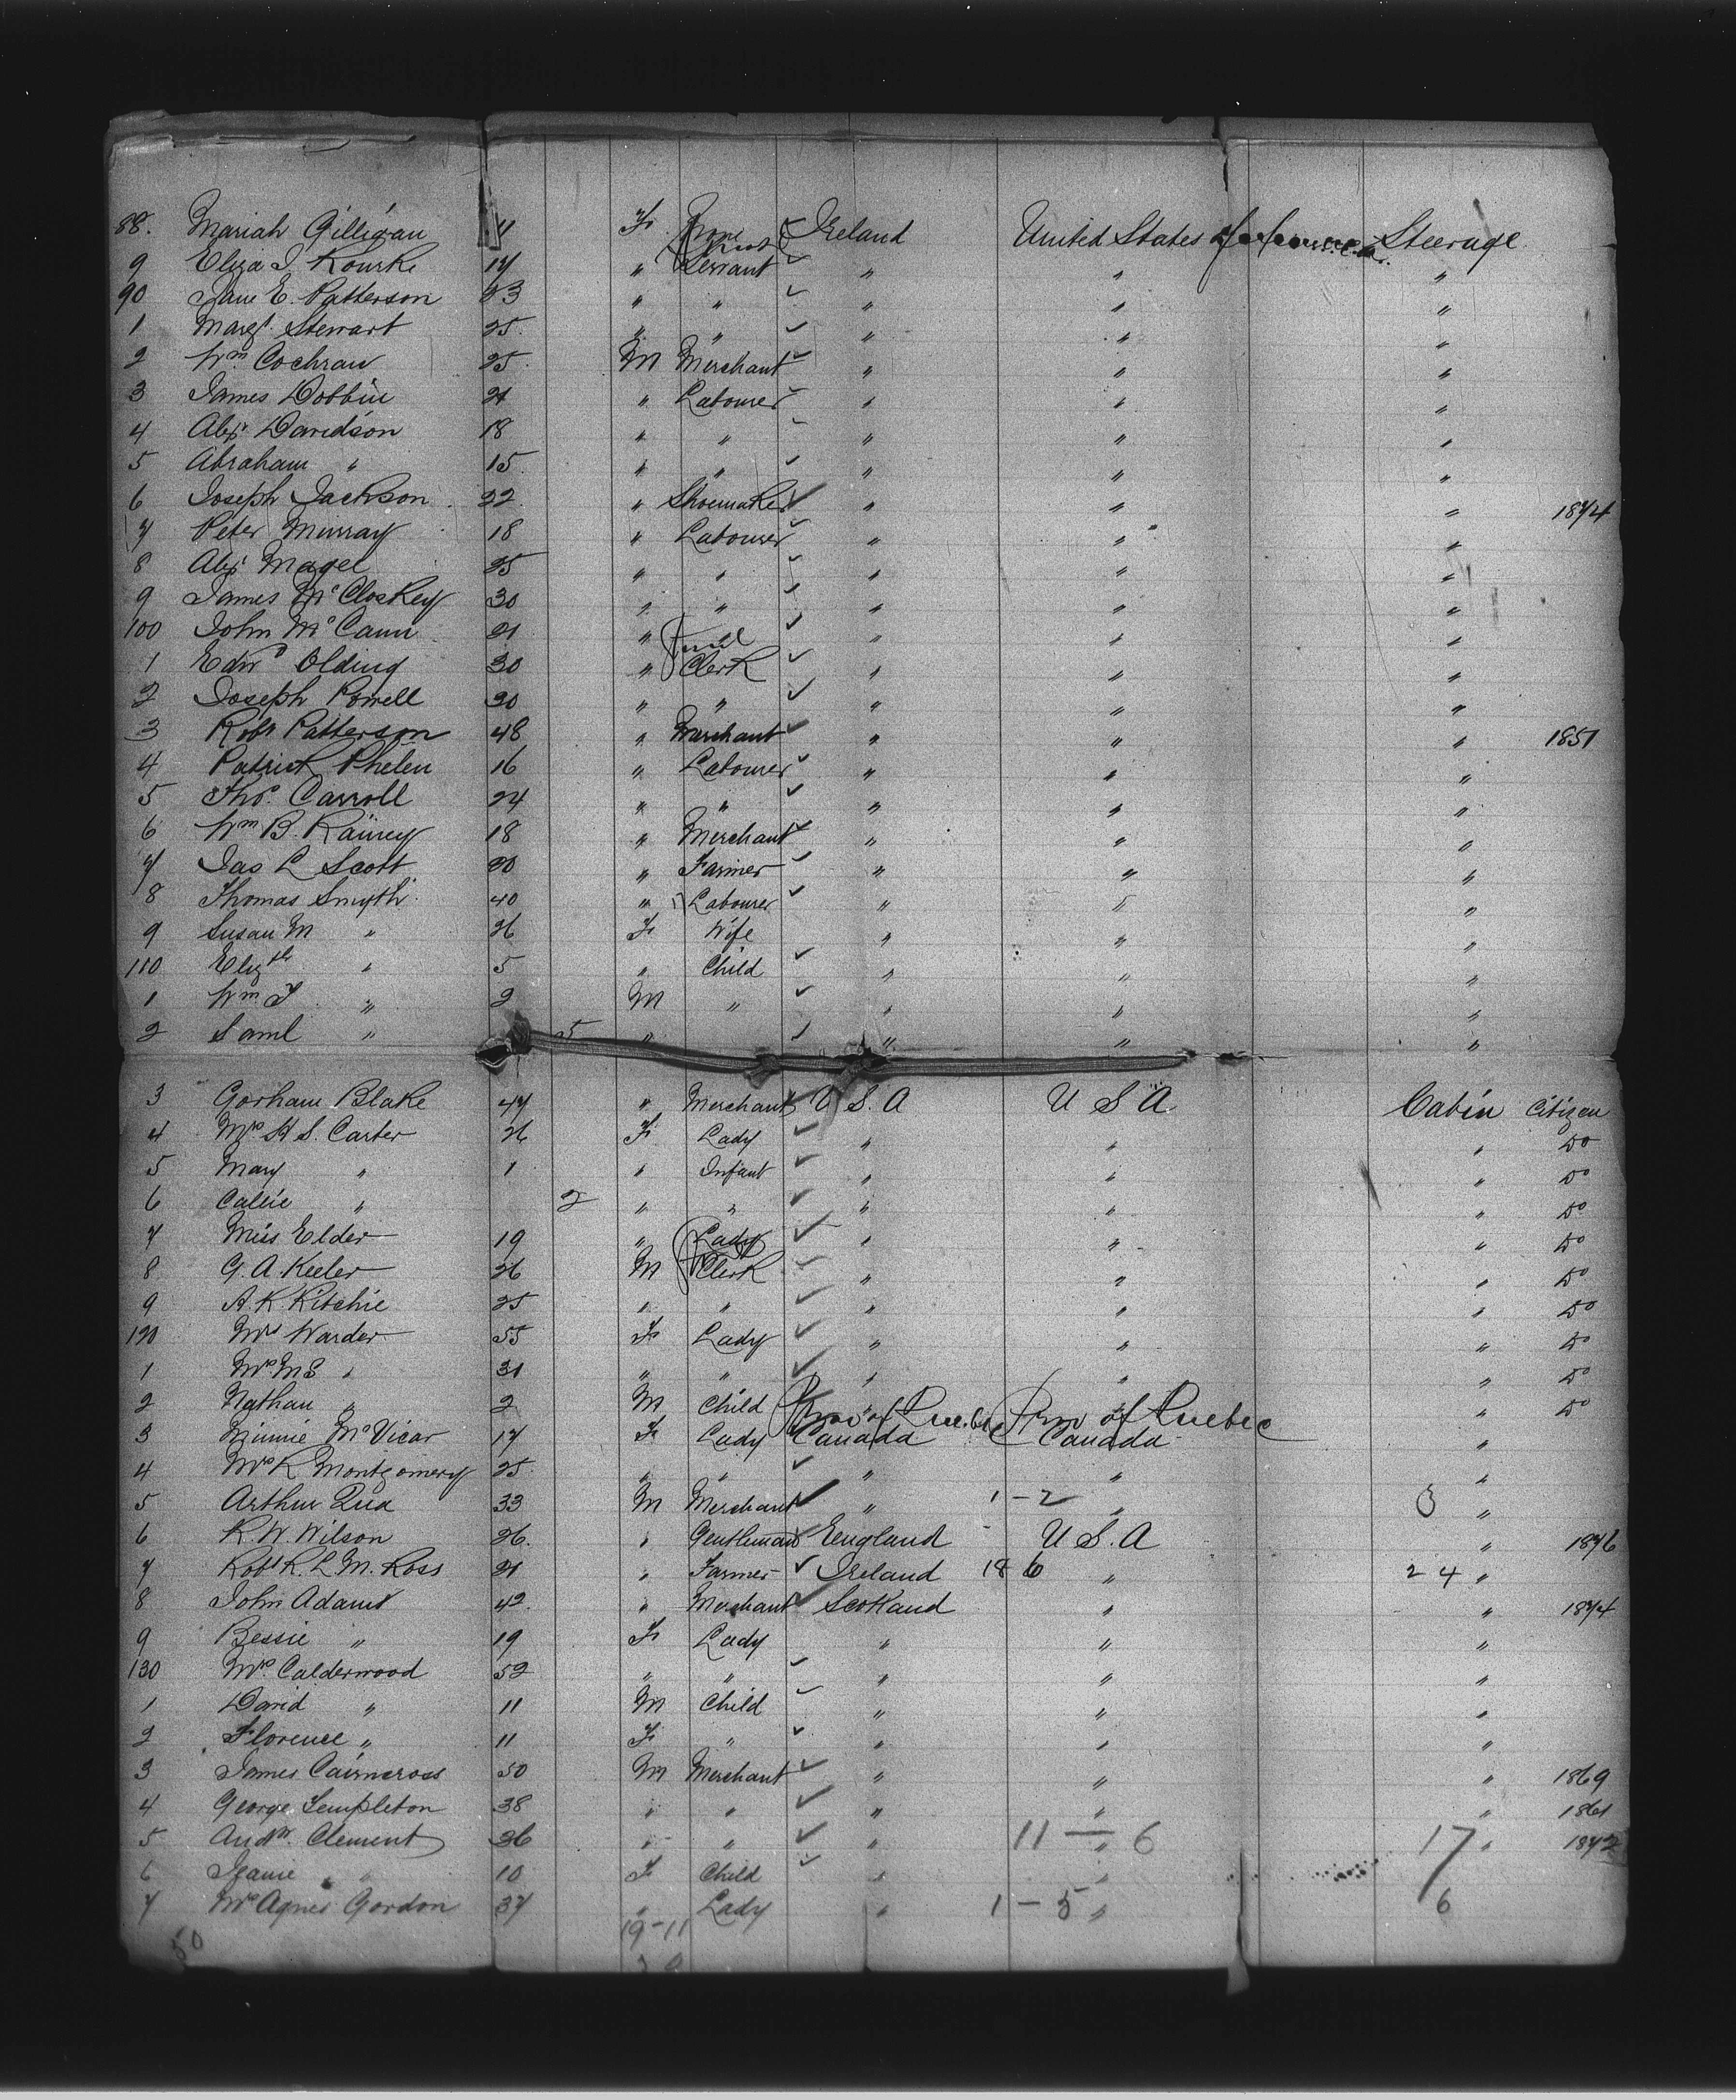 88. Mariah Gilligan 11 F. None Ireland United States of America Steerage
9 Eliza J. Rourke 17 " Servant " " "
90 Jane E. Patterson 23 " " " " "
1 Margt. Stewart 25 " " " " "
2 Wm. Cochran 25 M Merchant " " "
3 James Dobbin 21 " Labourer " " "
4 Alexr. Davidson 18 " " " " "
5 Abraham " 15 " " " " "
6 Joseph Jackson 22 " Shoemaker " " " 1874
7 Peter Murray 18 " Labourer " " "
8 Alexr. Magel 25 " " " " "
9 James McCloskey 30 " " " " "
100 John McCann 21 " " " "
1 Edwd Olding 30 " Clerk " " "
2 Joseph Powell 20 " " " " "
3 Robt Patterson 48 " Merchant " " " 1851
4 Patrick Phelen 16 " Labourer " " "
5 Thos. Carroll 24 " " " " "
6 Wm B. Rainey 18 " Merchant " " "
7 Jas L Scott 20 " Farmer " " "
8 Thomas Smyth 40 " Labourer " " "
9 Susan M " 26 F Wife " " "
110 Elizth " 5 " Child " " "
1 Wm J " 2 M " " " "
2 Saml " 5 " " " "
3 Gorham Blake 47 " Merchant U.S.A U S A Cabin Citizen
4 Mrs H S. Carter 26 F. Lady " " " Do
5 Mary " 1 " Infant " " " Do
6 Callie " 2 " " " " " Do
7 Miss Elder 19 " Lady " " " Do
8 G. A. Keeler 26 M Clerk " " " Do
9 A. K. Ritchie 25 " " " " " Do
120 Mrs Warder 55 F Lady " " " Do
1 Mrs M S " 31 " " " " " Do
2 Nathan " 2 M Child " " " Do
Prov of Quebec Prov of Quebec
3 Minnie McVicar 17 F Lady Canada Canada "
4 Mrs R Montgomery 25 " " " " "
5 Arthur Qua 33 M Merchant " 1-2 " 3 "
6 R. W. Wilson 26. " Gentleman England U.S.A " 1876
7 Robt R. L. M. Ross 21 " Farmer Ireland 18 6 " 24 "
8 John Adams 42 " Merchant Scotland " " 1874
9 Bessie " 19 F. Lady " " "
130 Mrs Calderwood 52 " " " " "
1 David " 11 M Child " " "
2 Florence " 11 F. " " " "
3 James Cairncross 50 M Merchant " " " 1869
4 George Templeton 38 " " " " " 1861
5 Andw. Clement 36 " " " 11-6 " 17 " 1872
6 Jeanie " 10 F Child " "
7 Mrs Agnes Gordon 37 " Lady " 1-5 " 6
50 19-11